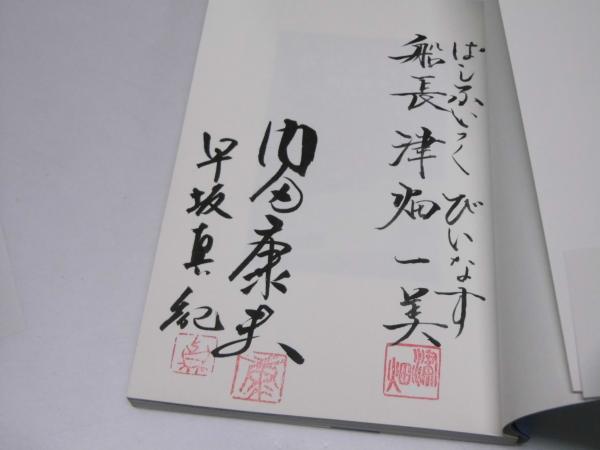 ぱしふぃっく びいなす
船長 津畑一美
内田康夫
早坂真紀
津畑